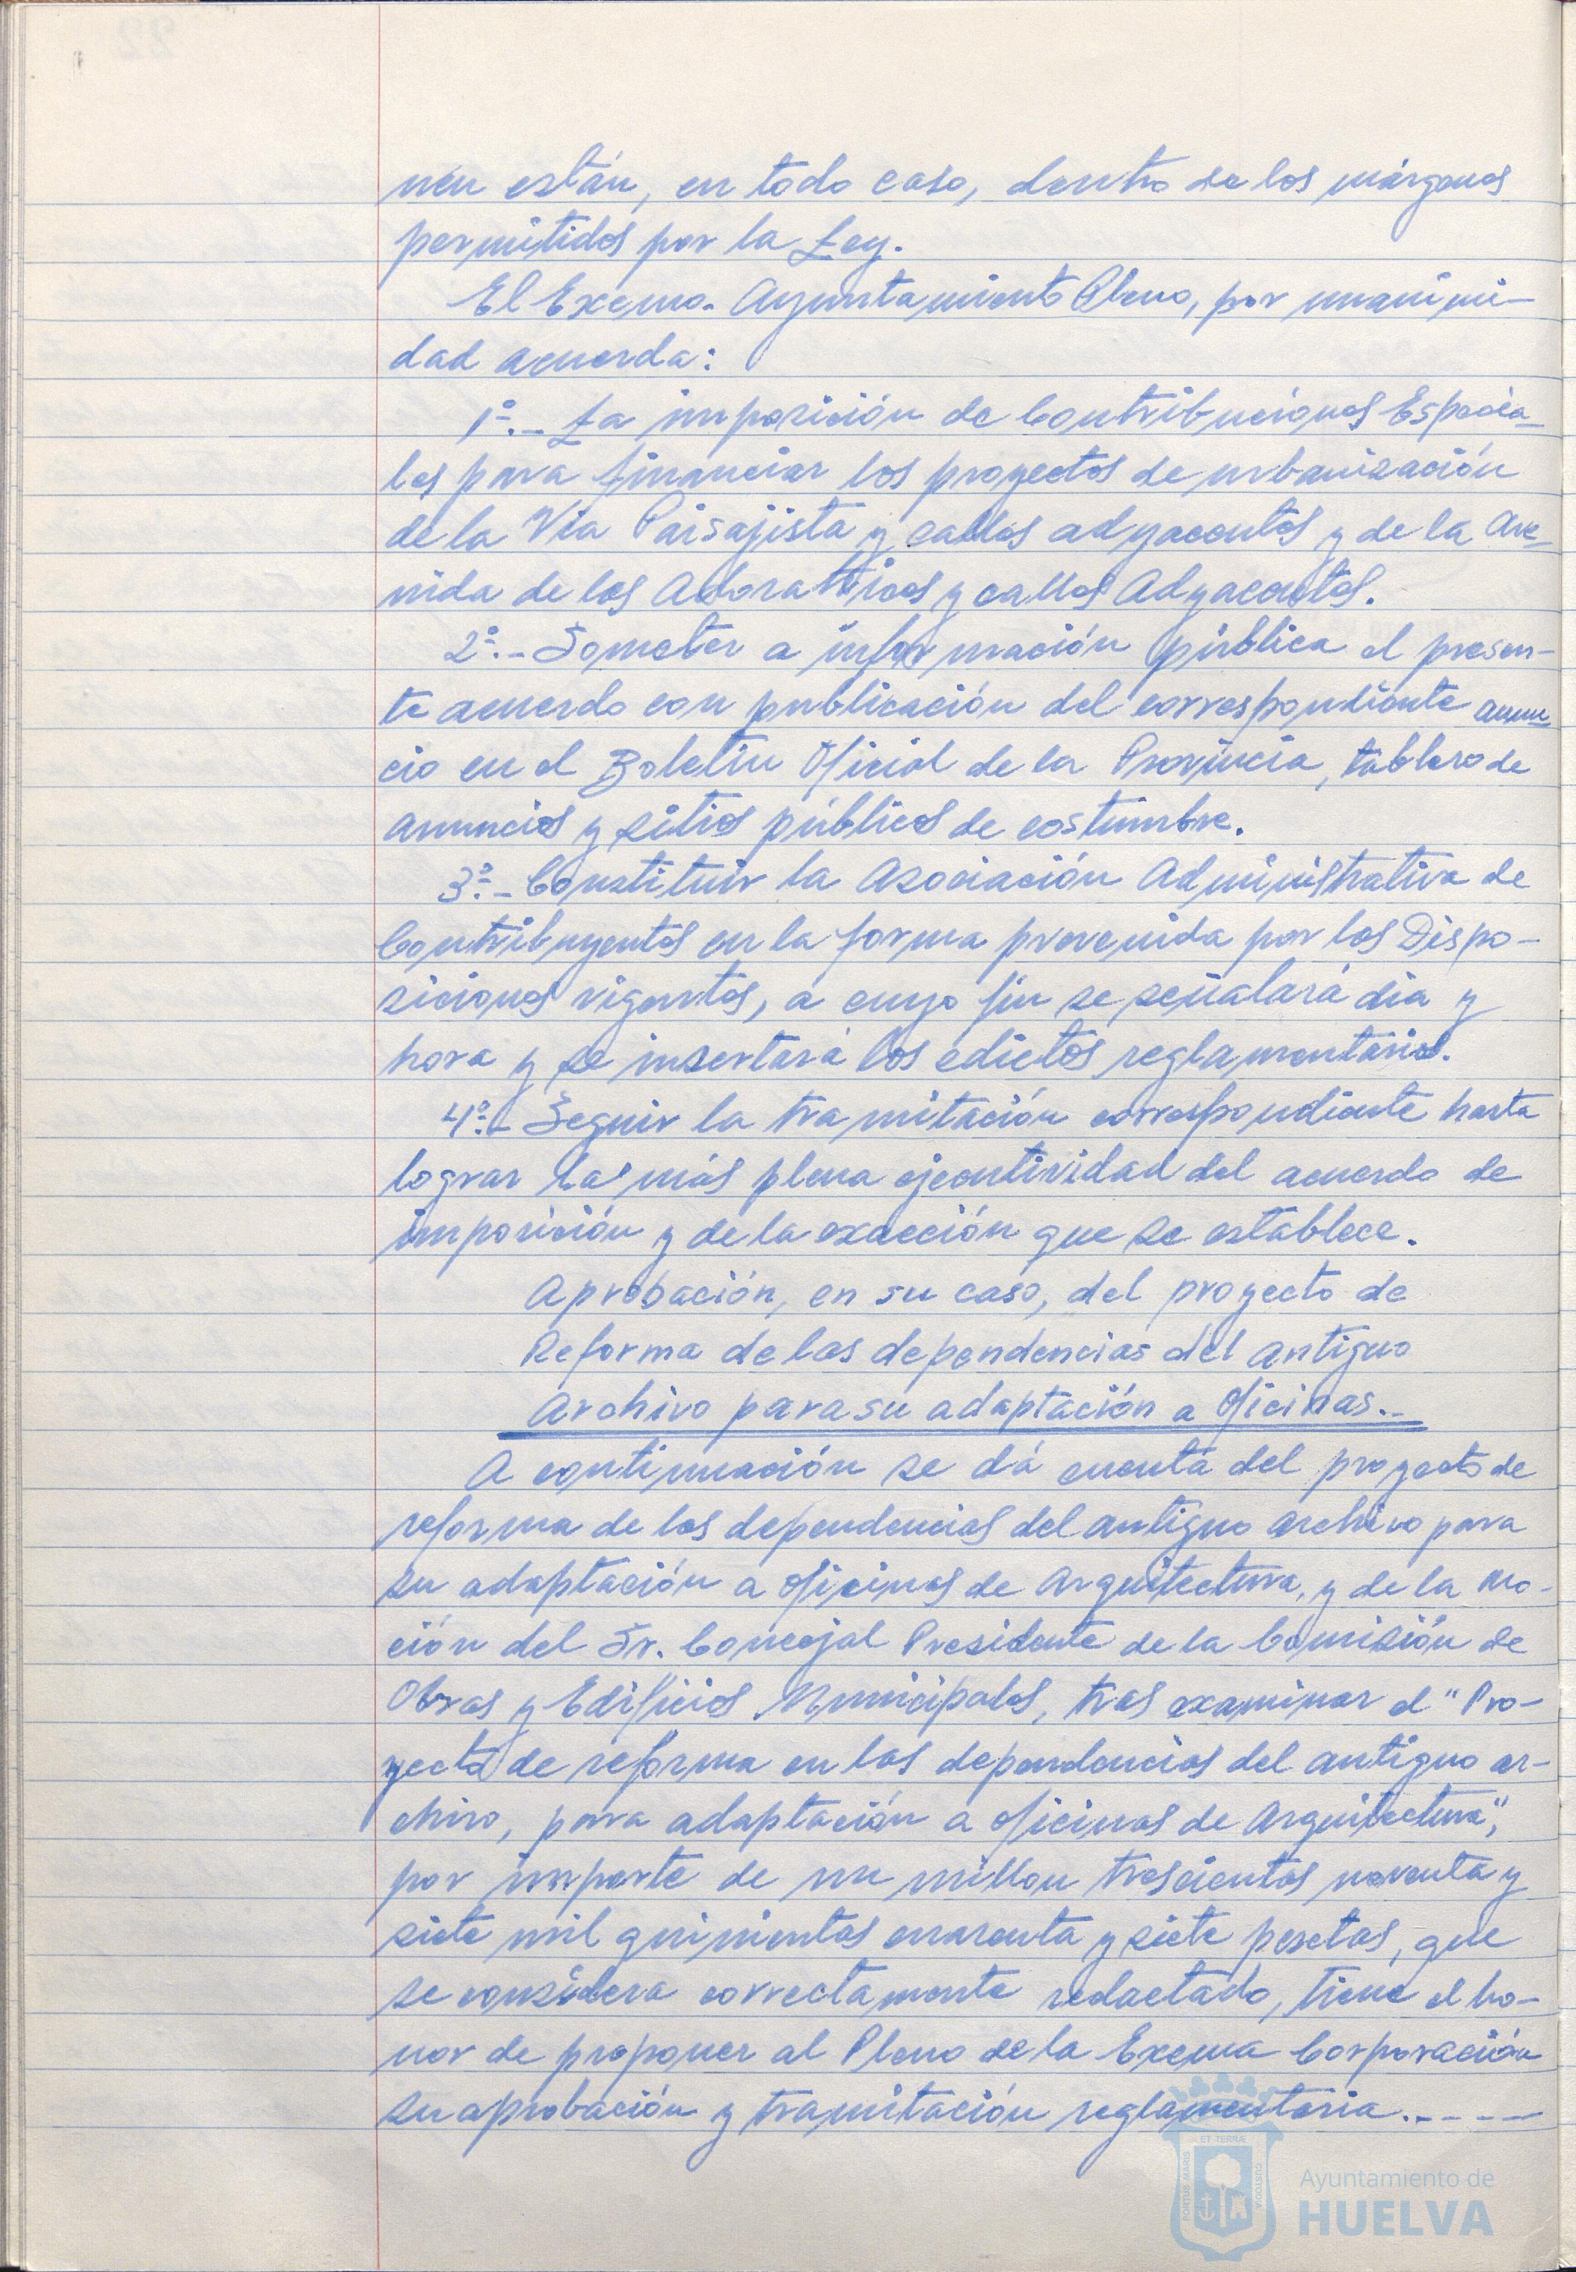 nen están, en todo caso, dentro de los márgenes
permitidos por la Ley.
El Excmo. Ayuntamiento Pleno, por unanimi-
dad acuerda:
1º.- La imposición de Contribuciones Especia-
les para financiar los proyectos de urbanización
de la Vía Paisajista y calles adyacentes y de la Ave-
nida de las Adoratrices y calles Adyacentes.
2º.- Someter a información pública el presen-
te acuerdo con publicación del correspondiente anun-
cio en el Boletín Oficial de la Provincia, tablero de
anuncios y sitios públicos de costumbre.
3º.- Constituir la Asociación Administrativa de
Contribuyentes en la forma prevenida por las Dispo-
siciones vigentes, a cuyo fin se señalará dia y
hora y se insertará los edictos reglamentarios.
4º.- Seguir la tramitación correspondiente hasta
lograr la más plena ejecutividad del acuerdo de
imposición y de la exacción que se establece.
Aprobación, en su caso, del proyecto de
Reforma de las dependencias del antiguo
Archivo para su adaptación a Oficinas.-
A continuación se dá cuenta del proyecto de
reforma de las dependencias del antiguo archivo para
su adaptación a oficinas de Arquitectura, y de la Mo-
ción del Sr. Concejal Presidente de la Comisión de
Obras y Edificios Municipales, tras examinar el "Pro-
yecto de reforma en las dependencias del antiguo ar-
chivo, para adaptación a oficinas de Arquitectura",
por importe de un millon trescientas noventa y
siete mil quinientas cuarenta y siete pesetas, que
se considera correctamente redactado, tiene el ho-
nor de proponer al Pleno de la Excma Corporación
su aprobación y tramitación reglamentaria.----
PORTUS MARIS ET TERRÆ CUSTODIA
Ayuntamiento de
HUELVA